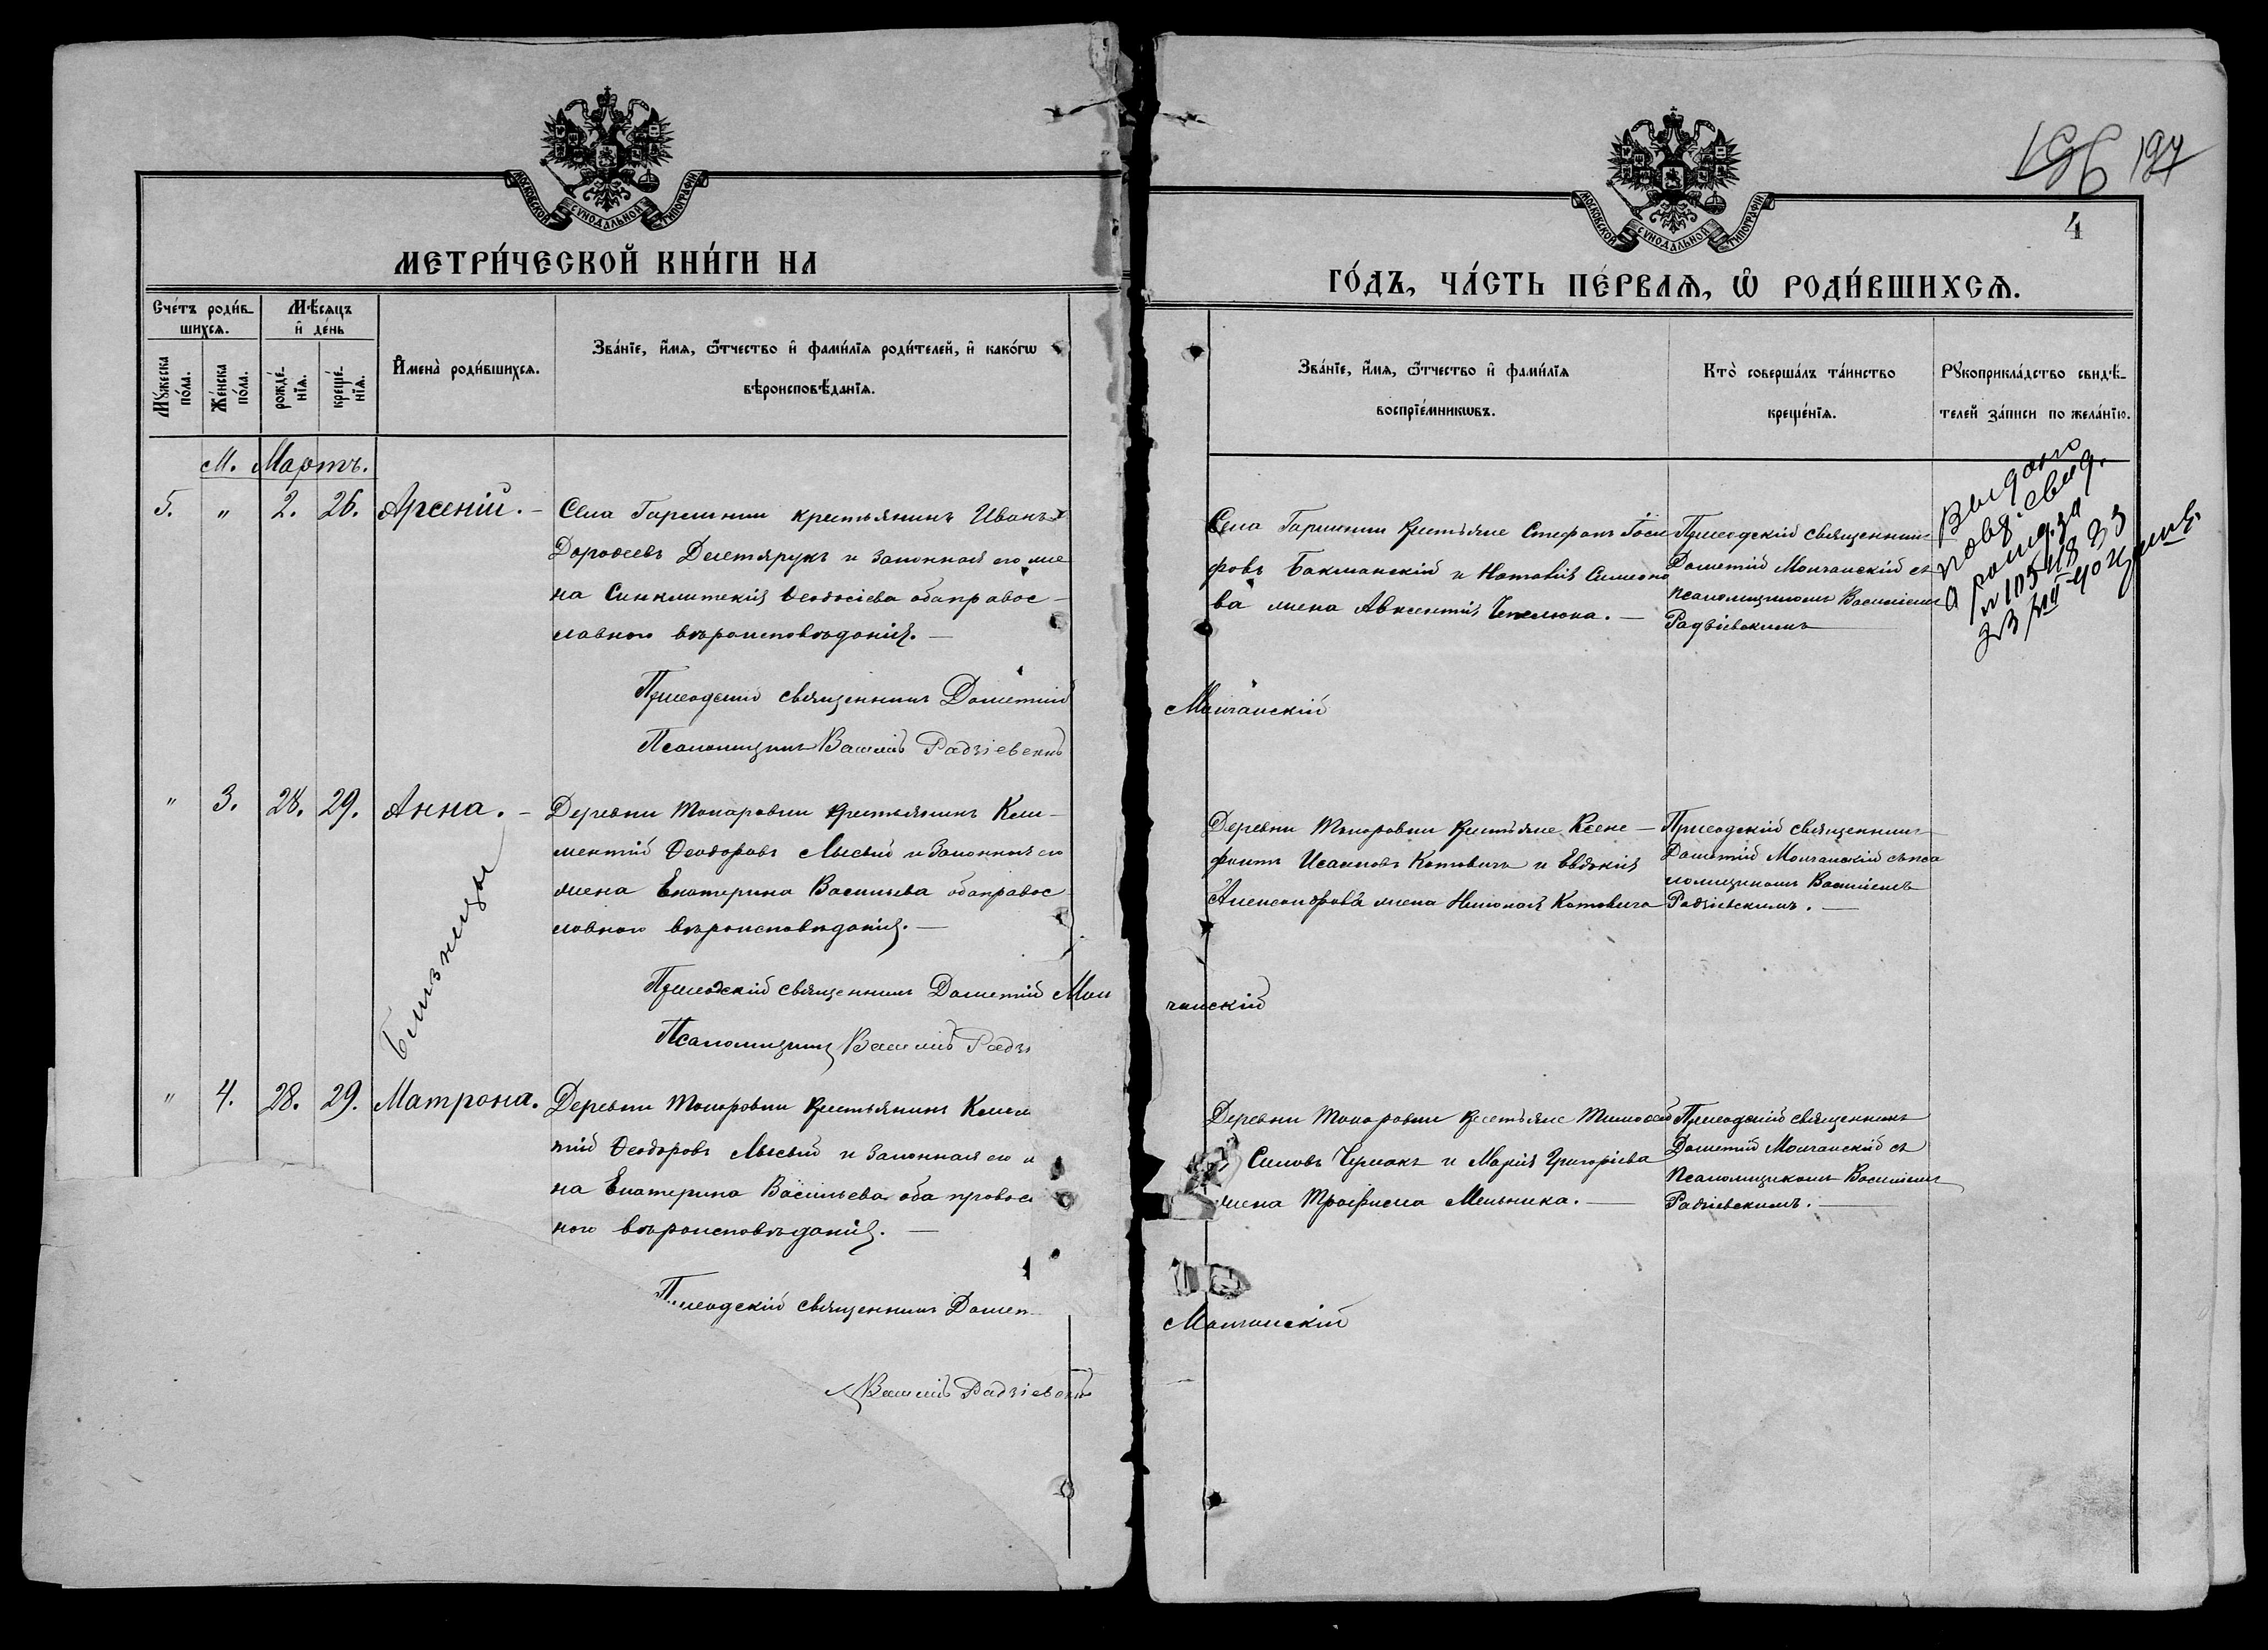 196 197
4
МОСКОВСКОЙ СѴНОДАЛЬНОЙ ТИПОГРАФІИ
МОСКОВСКОЙ СѴНОДАЛЬНОЙ ТИПОГРАФІИ
МЕТРИ́ЧЕСКОЙ КНИ́ГИ НА
ГО́ДЪ, ЧА́СТЬ ПЕ́РВАѦ, Ѡ҆ РОДИ́ВШИХСѦ.
Сче́тъ роди́в-
шихсѧ.
Мꙋ́жеска
по́ла.
Же́нска
по́ла.
Мѣ́сѧцъ
и҆ де́нь
рожде́-
нїѧ.
креще́-
нїѧ.
И҆мена̀ роди́вшихсѧ.
Зва́нїе, и҆́мѧ, ѻ҆́тчество и҆ фами́лїѧ роди́телей, и҆ како́гѡ
вѣроисповѣ́данїѧ.
Зва́нїе, и҆́мѧ, ѻ҆́тчество и҆ фами́лїѧ
воспрїе́мникѡвъ.
Кто̀ соверша́лъ та́инство
креще́нїѧ.
Рꙋкоприкла́дство свидѣ́-
телей за́писи по жела́нїю.
М. Мартъ.
5. " 2. 26. Арсеній. –
Села крестьянинъ Иванъ
Дороѳеевъ Дегтярукъ и законная его же
на Синклитекія Ѳеодосіева оба правос-
лавного вѣроисповѣданія. —
Приходскій священникъ Дометій
Псаломщикъ Василій Радзіевскій
Села крестьяне Стефанъ Іоси
фовъ Бакманскій и Наталія Симеоно
ва жена Авксентія. —
Молчанскій
Приходскій священникъ
Дометій Молчанскій съ
псаломщикомъ Василіемъ
Радзіевскимъ
Выдано
повт. свид.
о рожд. за
№ 105418 33
23/VII-40
" 3. 28. 29. Анна. –
Деревни Токаровки крестьянинъ Кли-
ментій Ѳеодоровъ Лысый и законная его
жена Екатерина Васильева оба правос
лавного вѣроисповѣданія. —
Приходскій священникъ Дометій Мол
Псаломщикъ Василій Радзі
Деревни Токаровки крестьяне Ксено-
фонтъ Исааковъ Котовичъ и Евдокія
Александрова жена Николая Котовича
чанскій
Приходскій священникъ
Дометій Молчанскій съ пса
ломщикомъ Василіемъ
Радзіевскимъ. —
Близнецы
" 4. 28. 29. Матрона.
Деревни Токаровки крестьянинъ Климен
тій Ѳеодоровъ Лысый и законная его
на Екатерина Васильева оба правос
ного вѣроисповѣданія. —
Приходскій священникъ Домет
Василій Радзіевскій
Деревни Токаровки крестьяне Тимоѳей
Силовъ Чумакъ и Марія Григоріева
жена Трофима Мельника. —
Молчанскій
Приходскій священникъ
Дометій Молчанскій съ
псаломщикомъ Василіемъ
Радзіевскимъ. —